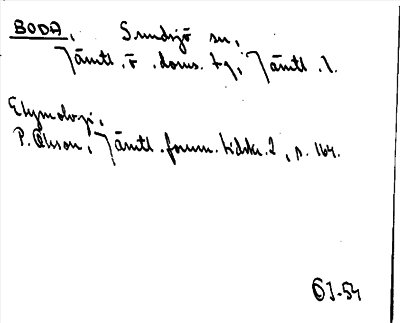 BODA, Sundsjö sn,
Jämtl. ö. doms. tg, Jämtl. l.
Etymologi,
P. Olsson, Jämtl. fornm. tidskr. 2, s. 164.
ÖJ-54